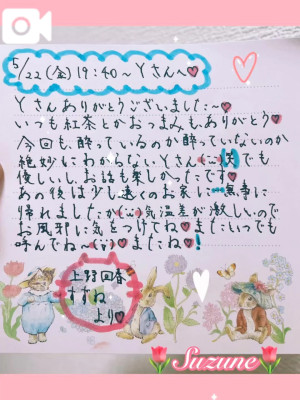 5/22(金)19:40～Yさんへ♥
Yさんありがとうございました～♥
いつも紅茶とかおつまみもありがとう♥
今回も、酔っているのか酔っていないのか
絶妙にわからないYさん(笑)でも
優しいし、お話も楽しかったです♥
あの後は少し遠くのお家に無事に
帰れましたか気温差が激しいので
お風邪に気をつけてね♥またいつでも
呼んでね～♥またね♥!
上野回春
すずね
より♥
Suzune